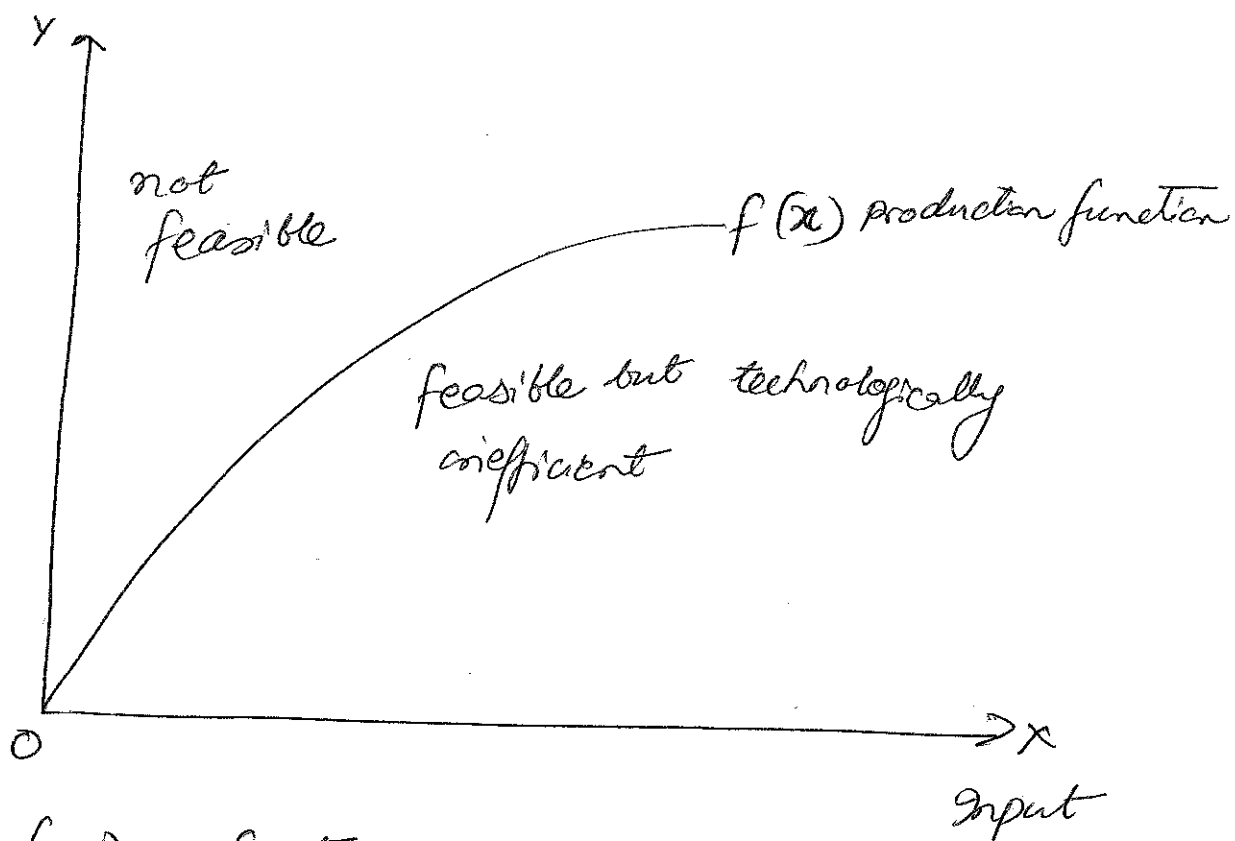 Y
not
feasible
f(x) production function
feasible but technologically
inefficient
O
X
Input